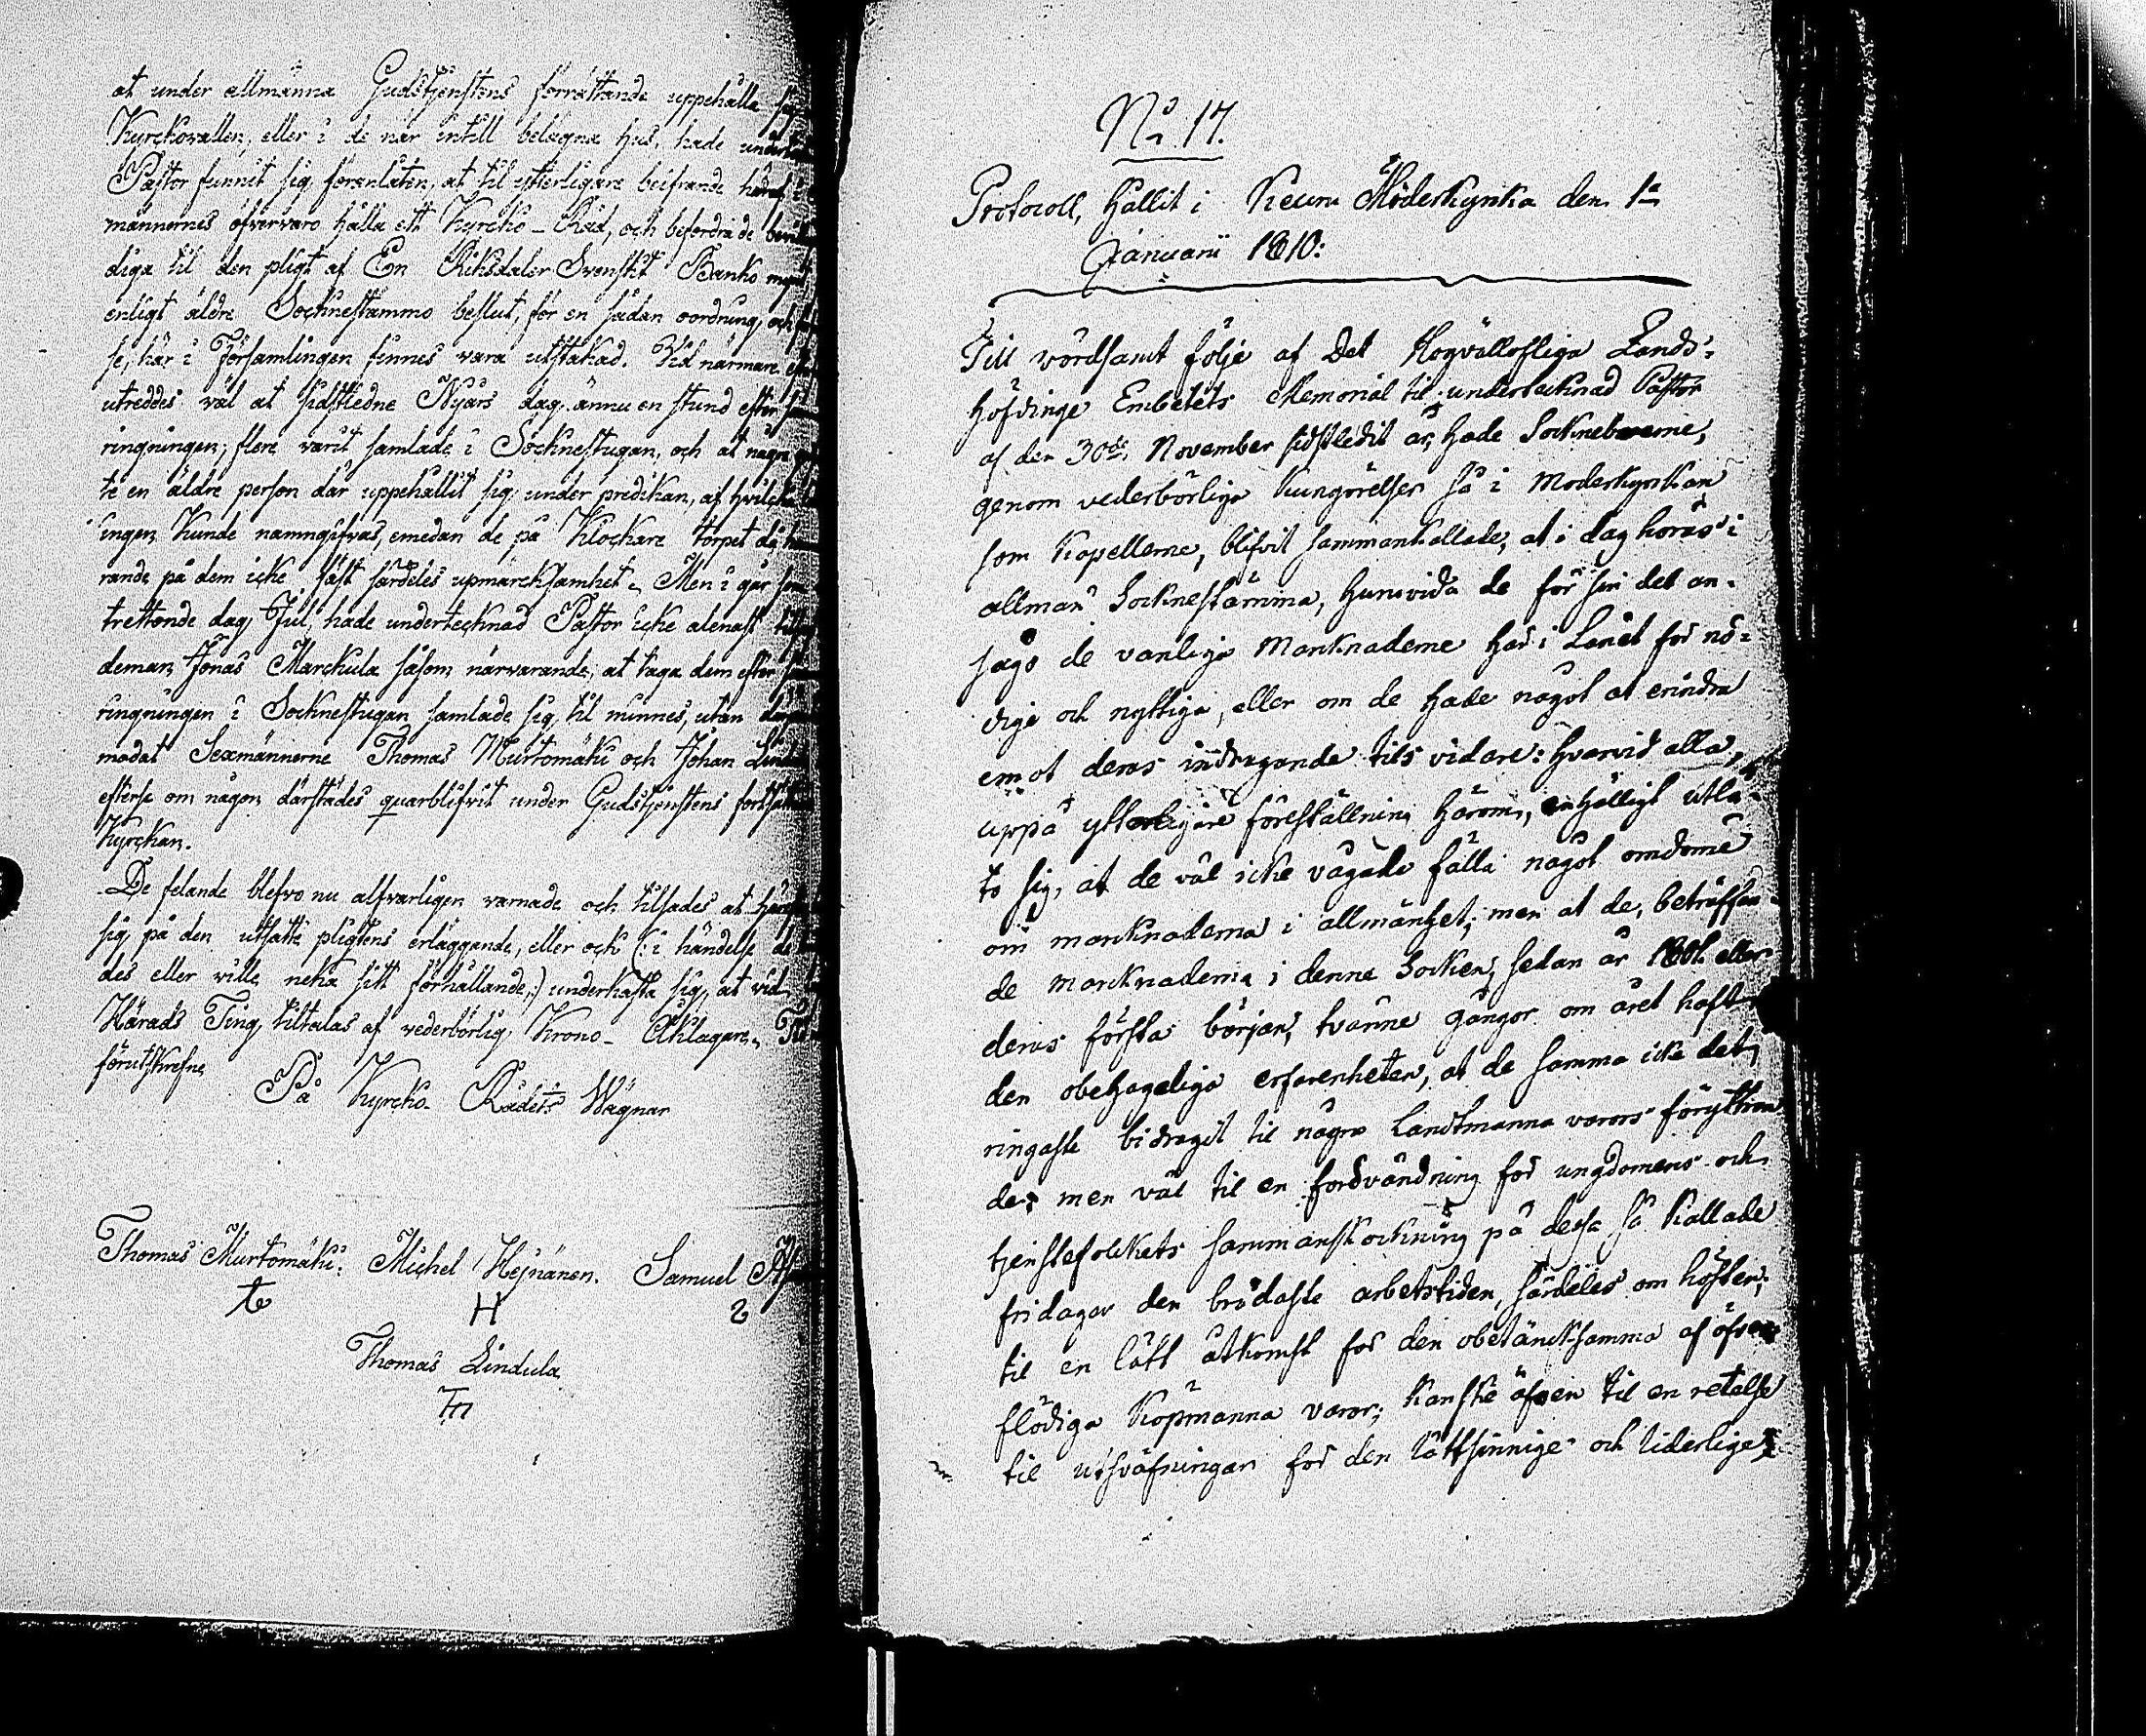 at under allmänna Gudstjenstens förrättande uppehålla sig
Kyrckovallen, eller i de när intill belägna hus, hade
Pastor funnit sig föranlåten, at til ytterligare beifrande häraf i
männernes öfvervaro hålla ett Kyrcko-Råd, och befordra de
diga til den pligt af En Riksdaler Svenskt Banko
enligt äldre Sockenstämmo beslut, för en sådan oordning, och
se, här i Församlingen finnes vara utstakad. Vid närmare
utreddes väl at sidstledne Nyårs dag, ännu en stund efter
ringningen, flere varit samlade i Sockenstugan, och at någre
te en äldre person där uppehållit sig under predikan, af hvilcka
ingen kunde namngifvas, emedan de på Klockare torpet
rande på dem icke fäst särdeles upmärcksamhet. Men i går som
trettonde dag Jul, hade undertecknad Pastor icke alenast
deman Jonas Marckula såsom närvarande, at taga dem efter
ringningen i Sockenstugan samlade sig, til minnes, utan
modat Sexmännerne Thomas Murtomäki och Johan
efterse om någon därstädes quarblifvit under Gudstjenstens
Kyrckan.
De felande blefvo nu alfvarligen varnade och tilsades at
sig på den utsatte pligtens erläggande, eller och (: i händelse de
des eller wille neka sitt förhållande :) underkasta sig, at vid
Härads Ting tiltalas af vederbörlig Krono-Åklagare.
förutskrefne
På Kyrcko-Rådets Wägnar
Thomas Murtomäki. Michel Hejnänen. Samuel
H 2
Thomas Lindula
No 17.
Protocoll, hållit i Keuru Moderkyrka den 1
Januarii 1810:
Till wördsamt följe af Det Högvällofliga Lands-
höfdinge Embetets Memorial til undertecknad Pastor
af den 30de November sidstledit år, hade Sockneboerne,
genom vederbörliga kungörelser så i Moderkyrkan
som Kapellerne, blifvit sammankallade, at i dag höras i
allmän Socknestämma, huruvida de för sin del an-
sågo de vanliga Marknaderne här i Länet för nö-
dige och nyttiga, eller om de hade något at erindra
emot deras indragande tils vidare: hvarvid alla,
uppå ytterligare föreställning härom, enhälligt utlä-
to sig, at de väl icke vågade fälla något omdöme
om marknaderna i allmänhet; men at de, beträffan-
de marcknaderna i denna Socken, sedan år 1801. eller
deras första början, tvänne gångor om året haft
den obehageliga erfarenheten, at de samma icke det
ringaste bidragit til några Landtmanna varors föryttran-
de; men väl til en förevändning för ungdomens och
tjenstefolckets sammanskockning på dessa så kallade
fridagar den brådaste arbetstiden, särdeles om hösten;
til en lätt åtkomst för den obetäncksamma af öfver-
flödiga Köpmanna varor; kanske äfven til en retelse
til utsväfningar för den lättsinnige och liderlige